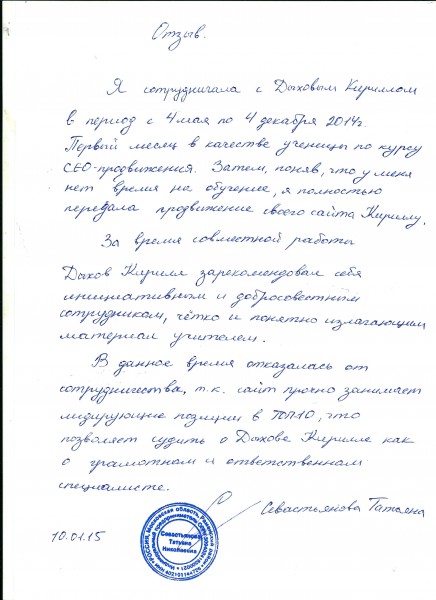 Отзыв.
Я сотрудничала с Дыховым Кириллом
в период с 4 мая по 4 декабря 2014г.
Первый месяц в качестве ученицы по курсу
СЕО-продвижения. Затем, поняв, что у меня
нет время на обучение, я полностью
передала продвижение своего сайта Кириллу.
За время совместной работы
Дыхов Кирилл зарекомендовал себя
инициативным и добросовестным
сотрудником, чётко и понятно излагающим
материал учителем.
В данное время отказалась от
сотрудничества, т.к. сайт прочно занимает
лидирующие позиции в ТОП10, что
позволяет судить о Дыхове Кирилле как
о грамотном и ответственном
специалисте.
Севастьянова Татьяна
10.01.15
Севастьянова
Татьяна
Николаевна